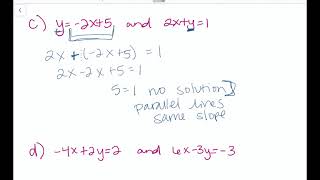 c) y=-2x+5 and 2x+y=1
2x + (-2x+5) = 1
2x - 2x + 5 = 1
5 = 1 no solution
parallel lines
same slope
d) -4x+2y=2 and 6x-3y=-3